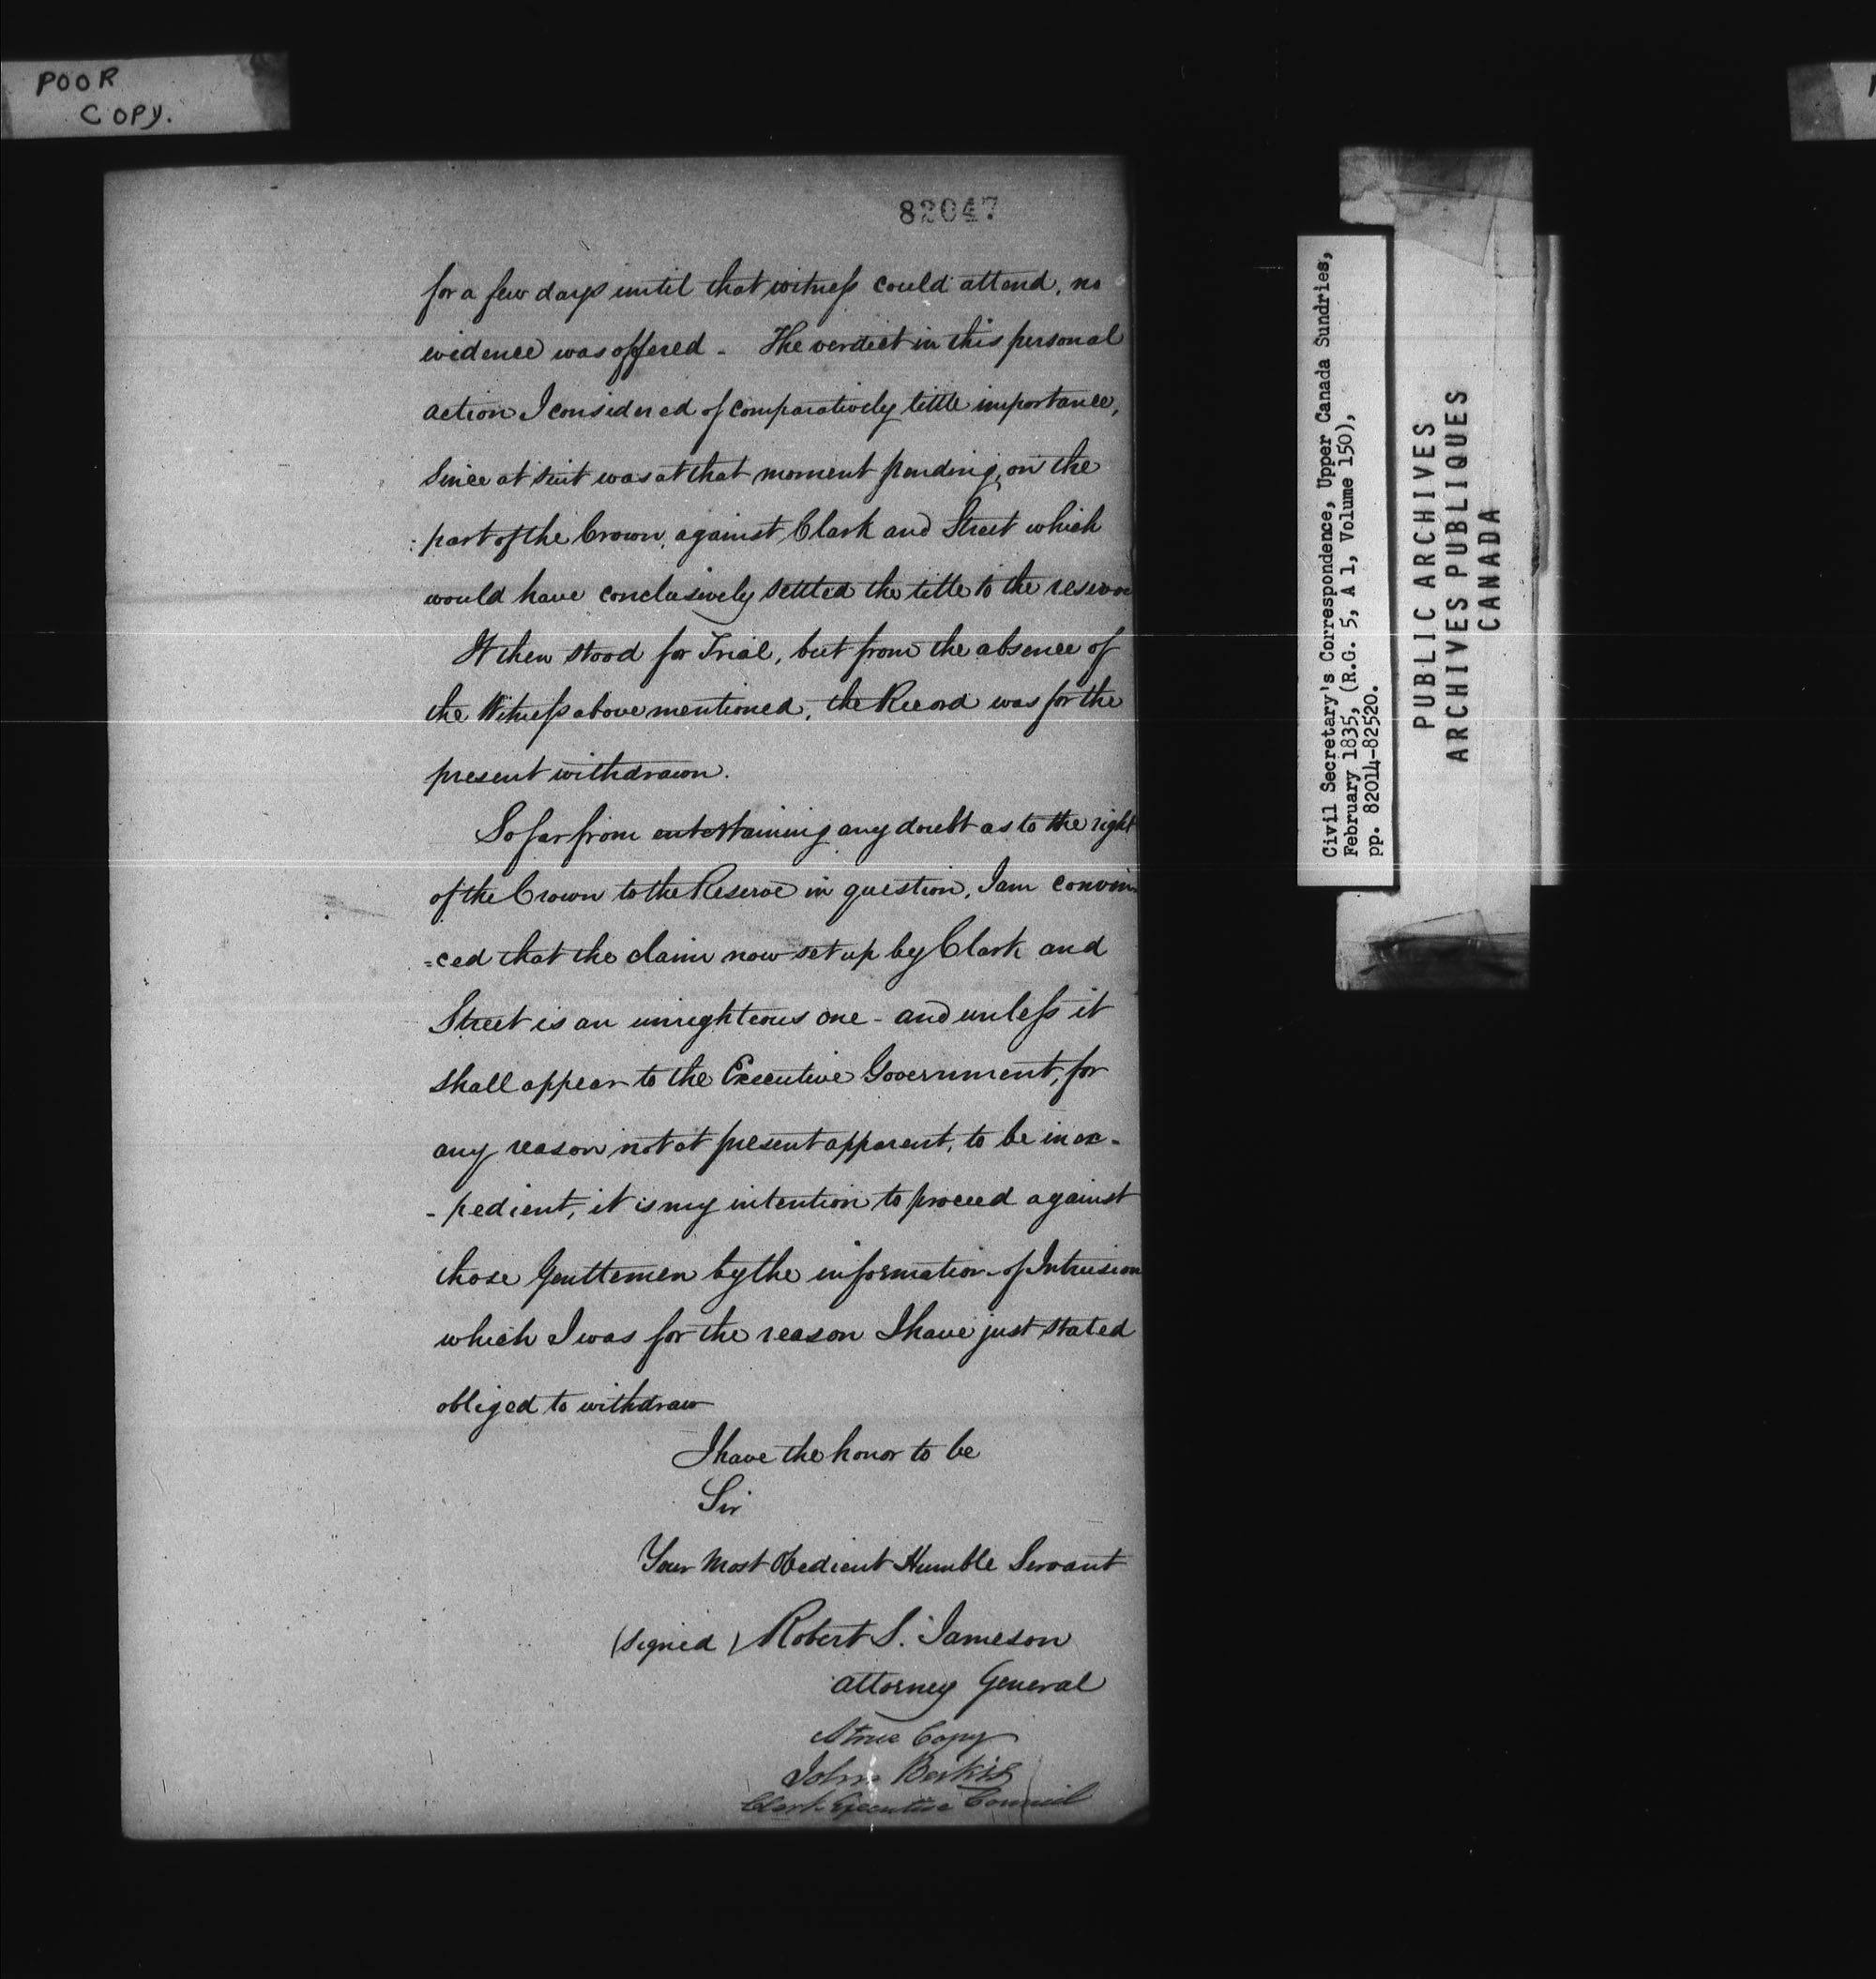 POOR
COPY.
82047
for a few days until that witness could attend, no
evidence was offered - The verdict in this personal
action I considered of comparatively little importance,
Since at suit was at that moment pending, on the
: part of the Crown, against Clark and Street which
would have conclusively settled the title to the reserve
It then stood for Trial, but from the absence of
the Witness above mentioned, the Record was for the
present withdrawn.
So far from entertaining any doubt as to the right
of the Crown to the Reserve in question, I am convin
=ced that the claim now set up by Clark and
Street is an unrighteous one - and unless it
shall appear to the Executive Government, for
any reason not at present apparent, to be inex-
- pedient, it is my intention to proceed against
those Gentlemen by the information of Intrusion
which I was for the reason I have just stated
obliged to withdraw
I have the honor to be
Sir
Your Most Obedient Humble Servant
(signed) Robert S. Jameson
Attorney General
A true Copy
John Beikie
Clerk Executive Council
Civil Secretary's Correspondence, Upper Canada Sundries,
February 1835, (R.G. 5, A 1, Volume 150),
pp. 82014-82520.
PUBLIC ARCHIVES
ARCHIVES PUBLIQUES
CANADA